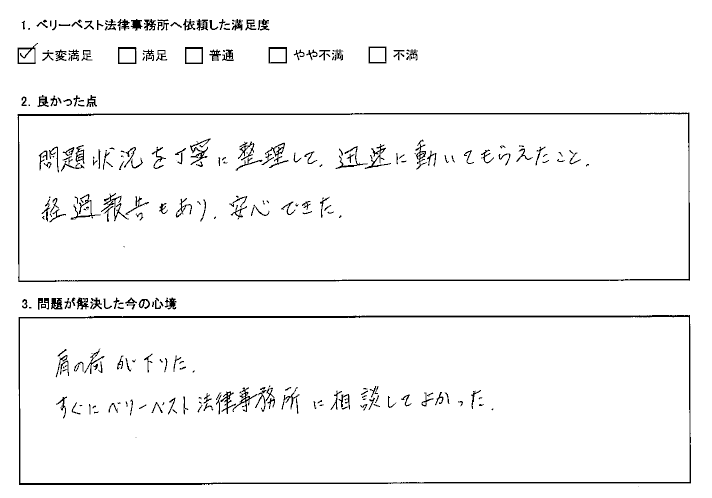 1. ベリーベスト法律事務所へ依頼した満足度
☑ 大変満足 □ 満足 □ 普通 □ やや不満 □ 不満
2. 良かった点
問題状況を丁寧に整理して、迅速に動いてもらえたこと。
経過報告もあり、安心できた。
3. 問題が解決した今の心境
肩の荷が下りた。
すぐにベリーベスト法律事務所に相談してよかった。